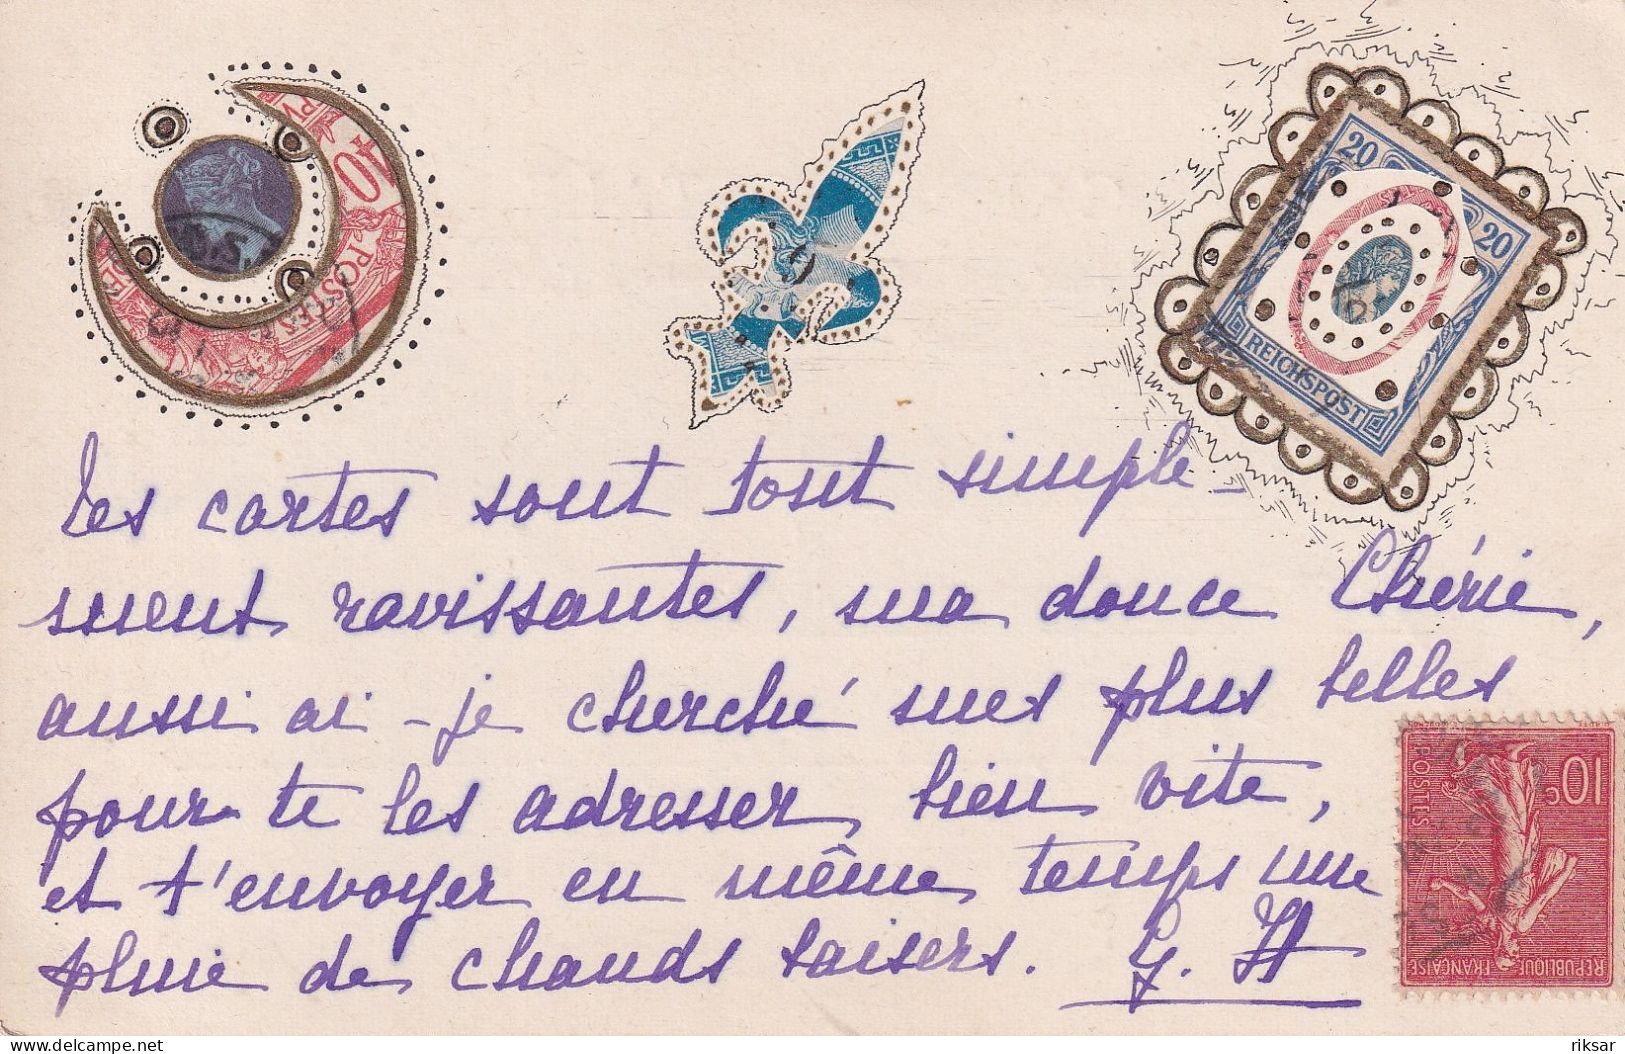 40
POSTES
20
20
REICHSPOST
Tes cartes sont tout simple-
ment ravissantes, ma douce Chérie,
aussi ai-je cherché mes plus belles
pour te les adresser bien vite,
et t'envoyer en même temps une
pluie de chauds baisers. G. H
10c
POSTES
REPUBLIQUE FRANÇAISE
delcampe.net
riksar